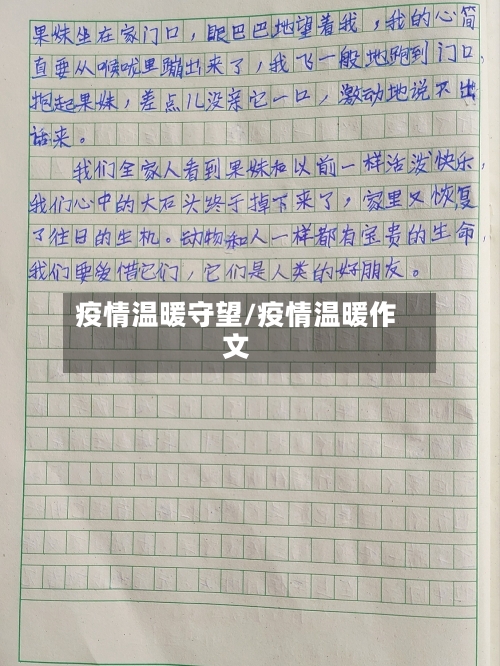 果妹坐在家门口，眼巴巴地望着我，我的心简
直要从喉咙里蹦出来了，我飞一般地跑到门口，
抱起果妹，差点儿没亲它一口，激动地说不出
话来。
我们全家人看到果妹和以前一样活泼快乐，
我们心中的大石头终于掉下来了，家里又恢复
了往日的生机。动物和人一样都有宝贵的生命，
我们要爱惜它们，它们是人类的好朋友。
疫情温暖守望/疫情温暖作
文